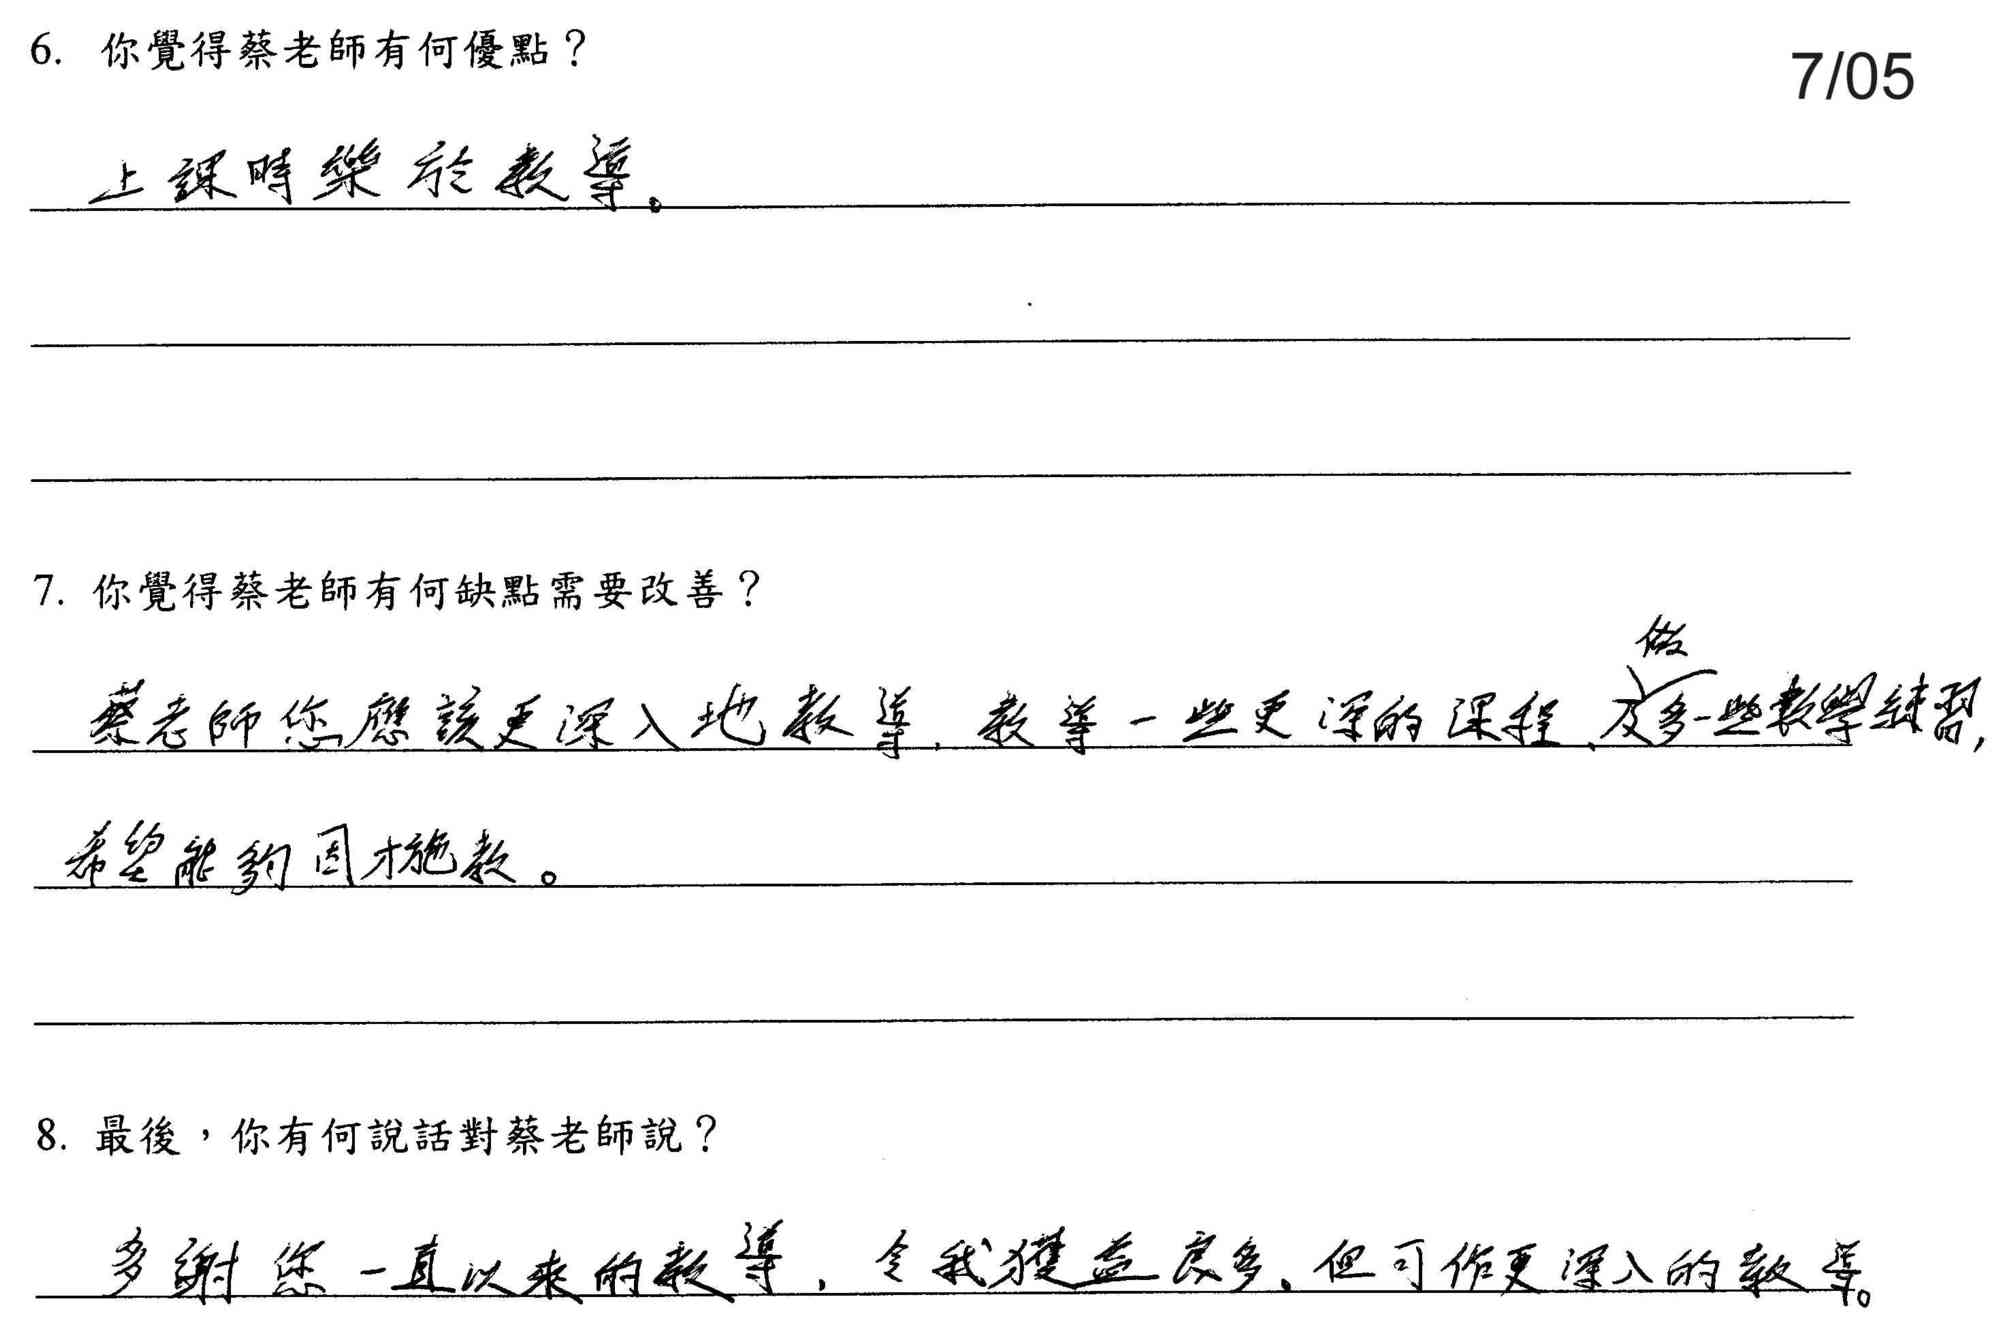 6. 你覺得蔡老師有何優點？
7/05
上課時樂於教導。
7. 你覺得蔡老師有何缺點需要改善？
做
蔡老師您應該更深入地教導，教導一些更深的課程、及多一些數學練習，
希望能夠因才施教。
8. 最後，你有何說話對蔡老師說？
多謝您一直以來的教導，令我獲益良多、但可作更深入的教導。